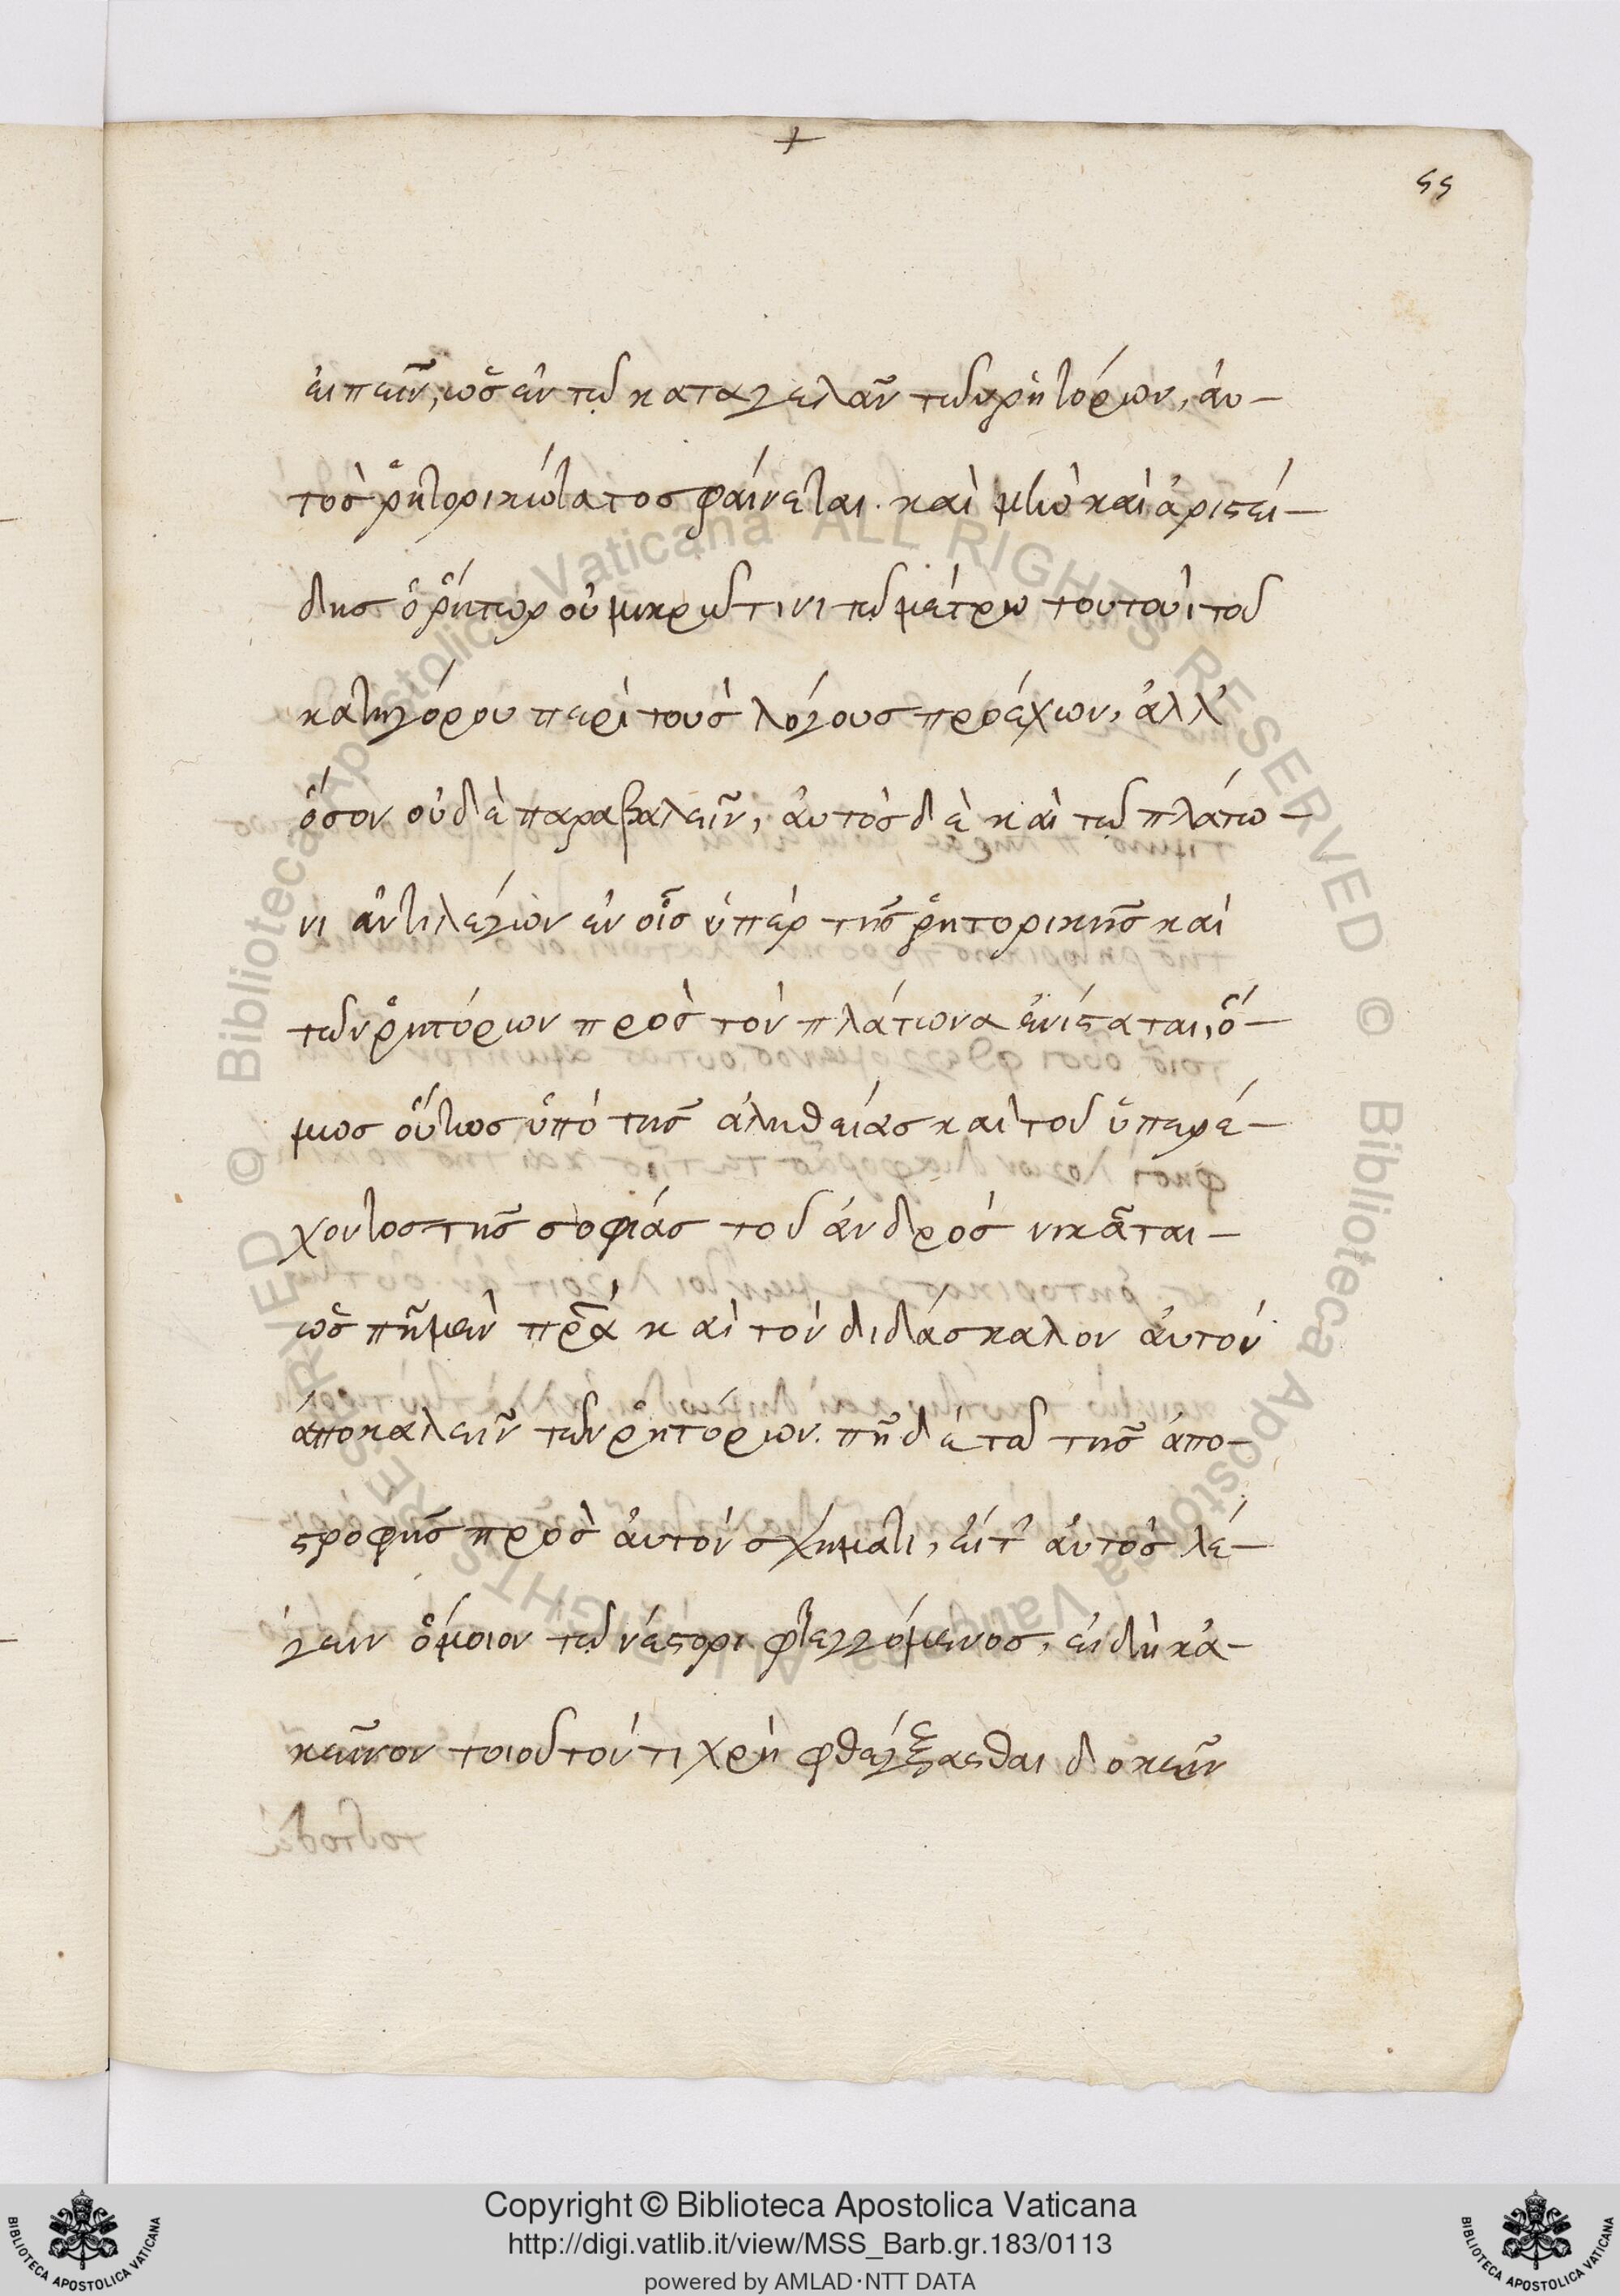 +
55
εἰπεῖν, ὡς ἐν τῷ καταγελᾶν τῶν ῥητόρων, αὐ-
τὸς ῥητορικώτατος φαίνεται. καὶ μὴν καὶ ἀριστεί-
δης ὁ ῥήτωρ οὐ μικρῷ τινι τῷ μέτρω τουτουῒ τοῦ
κατηγόρου περὶ τοὺς λόγους προέχων, ἀλλ'
ὅσον οὐδὲ παραβαλεῖν, αὐτὸς δὲ καὶ τῷ πλάτω-
νι ἀντιλέγων ἐν οἷς ὑπὲρ τῆς ῥητορικῆς καὶ
τῶν ῥητόρων πρὸς τὸν πλάτωνα ἐνίσταται, ὅ-
μως οὕτως ὑπὸ τῆς ἀληθείας καὶ τοῦ ὑπερέ-
χοντος τῆς σοφίας τοῦ ἀνδρὸς νικᾶται-
ὡς πῆ μὲν πρα καὶ τὸν διδάσκαλον αὐτὸν
ἀποκαλεῖν τῶν ῥητόρων. πῆ δὲ τῶ τῆς ἀπο-
στροφῆς πρὸς αὐτὸν σχήματι, εἶτ' αὐτὸς λέ-
γειν ὅμοιον τῷ νέστορι φθεγγόμενος, εἰ δὴ κἀ-
κεῖνον τοιοῦτόν τι χρὴ φθέγξασθαι δοκεῖν
Copyright © Biblioteca Apostolica Vaticana
http://digi.vatlib.it/view/MSS_Barb.gr.183/0113
powered by AMLAD·NTT DATA
BIBLIOTECA APOSTOLICA VATICANA
BIBLIOTECA APOSTOLICA VATICANA